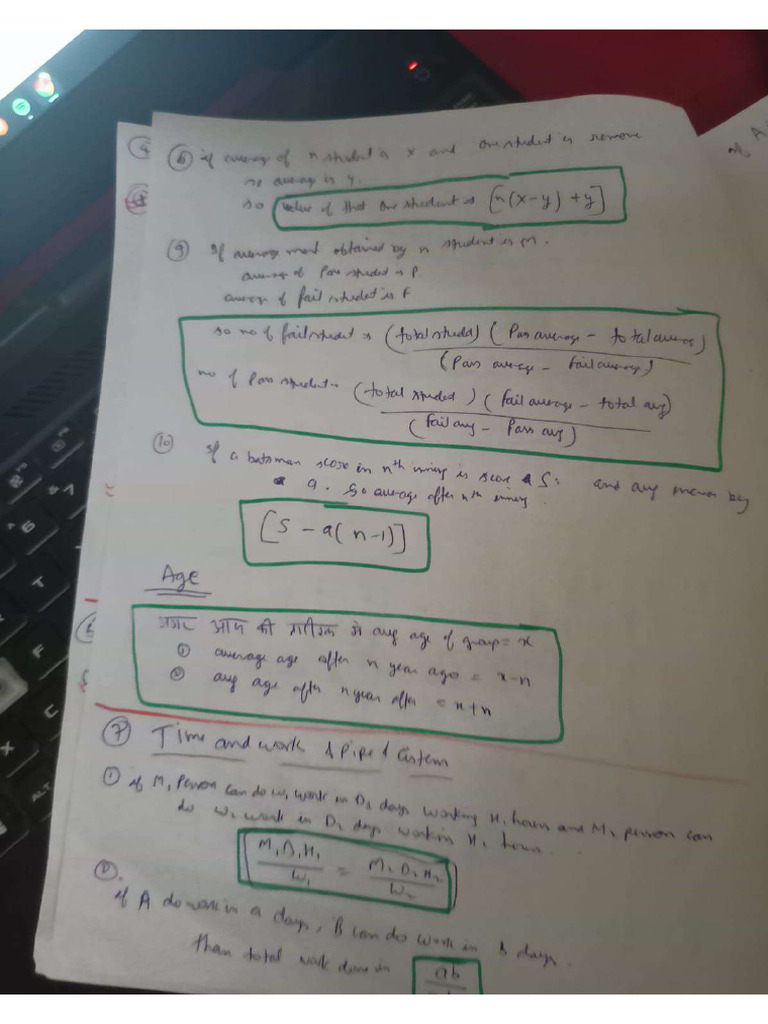 ⑧ if average of n student is x and one student is remove
so average is y.
so value of that one student is [n(x-y) + y]
⑨ If average most obtained by n student is M.
average of Pass student is P.
average of fail student is F
so no of fail student = (total studet) (Pass average - total average)
(Pass average - fail average)
no of Pass student = (total studet) (fail average - total avg)
(fail avg - Pass avg)
⑩ If a batsman score in nth inning is score S: and avg by
a. So average after nth inning
[S - a(n-1)]
Age
अगर आप की तारीख मे avg age of group = x
① average age after n year ago = x-n
② avg age after n year after = x+n
⑦ Time and work & pipe & Cistern
① if M₁ Person can do W₁ work in D₁ days working H₁ hours and M₂ person can
do W₂ work in D₂ days working H₂ hour.
M₁D₁H₁ = M₂D₂H₂
W₁ W₂
②.
if A do work in a days, B can do work in b days.
than total work done in ab